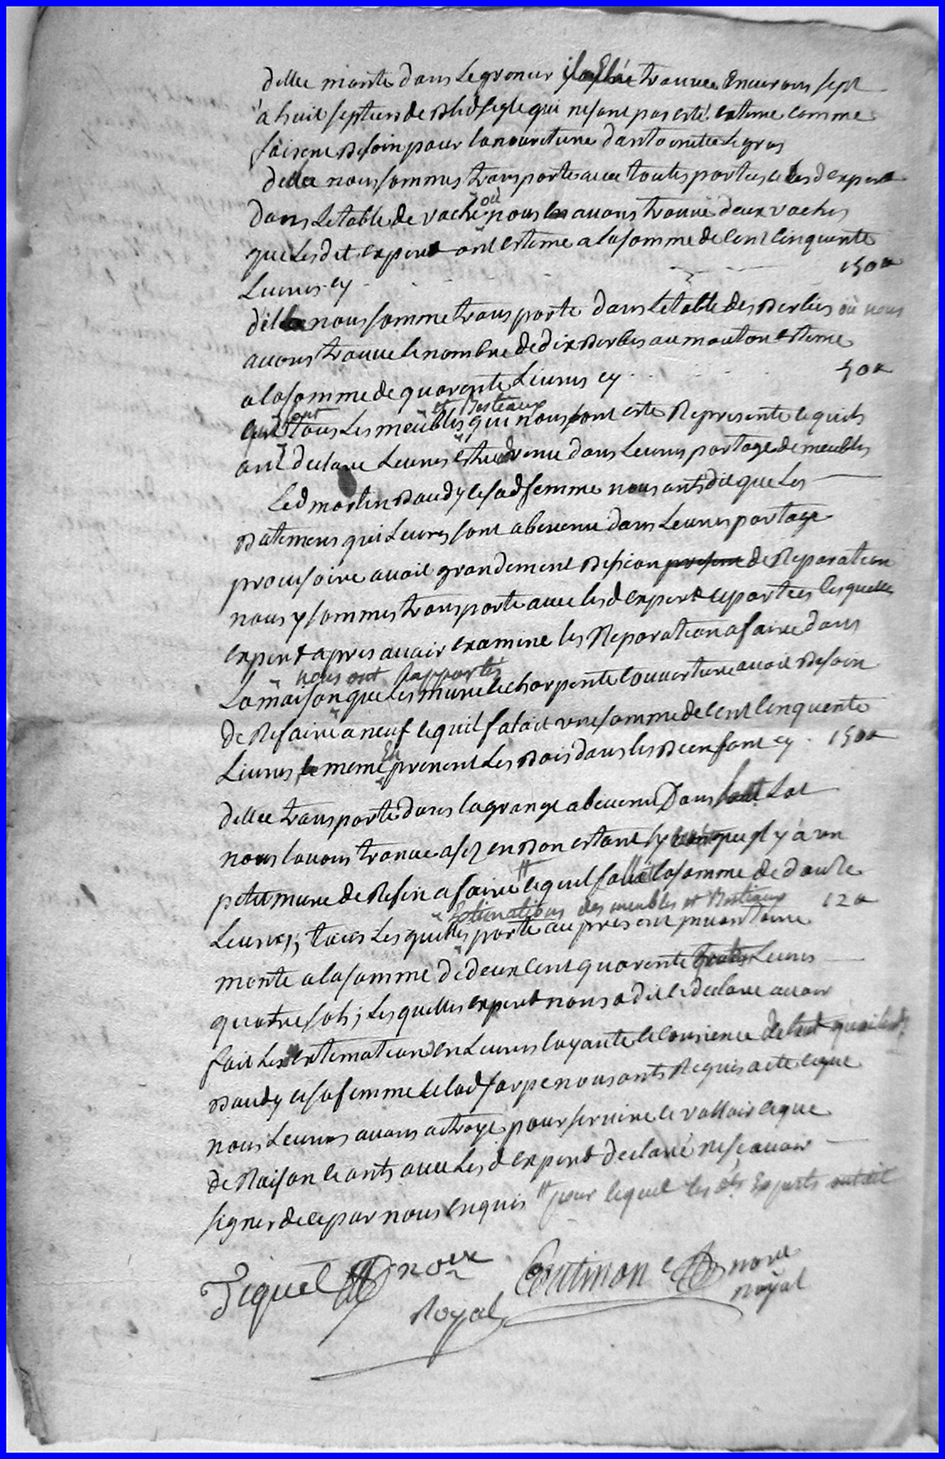 dillec monte dans le grenier il a Esté trouvee Environs sept
à huit septiers de bled segle qui ne sont pas esté estime comme
faisent besoin pour la nouriture
dillec nous sommes transporte avec toutes parties et lesd expert
dans letable de vache où nous en avons trouvé deux vaches
que lesdit expert ont estime a la somme de Cent Cinquente
Livres cy 150ᵗᵗ
dillec nous somme transporte dans letable des berbies où nous
avons trouve le nombre de dix berbies au mouton estime
a la somme de quarente Livres cy 40ᵗᵗ
sont tous Les meubles et Besteaux qui nous sont esté Represente lequels
ont declare Leurs estre venu dans Leurs partage de meubles
Led martin Baudy et sad femme nous ants dit que Les
batimens qui Leurs sont abevenu dans Leurs partage
provisoire avoit grandement besoin present de Reparation
nous y sommes transporte avec lesd expert et parties lesquelles
expert apres avoir examine les Reparation a faire dans
La maison nous ont Rapportés que les murs le charpente couverture avoit besoin
de Refaire a neuf et quil falait une somme de Cent Cinquente
Livres meme En prenent Les bois dans les biens font cy 150ᵗᵗ
dillec transporte dans la grange abevenu Dans Lot
nous lavons trouve asez en bon estant quil y a un
petit mure de Refin a faire et quil fallait la somme de douze
Livres; toutes Les quelles Estimations des meubles et Bestiaux porté au present inventaire 12ᵗᵗ
monte a la somme de deux cent quarente Livres
quatre sols; Les quelles expert nous a dit et declare avoir
fait Les estimation en Leurs loyauté et consience
Baudy et sa femme et lad farpe nous ants Requis acte et que
nous Leurs avons actroyé pour servire et valloir ce que
de Raison et ants avec Les d expert declaré ne scavoir
signer de ce par nous enquis pour lequel les dts Experts
Tiquet nore Coutinon nore
Royal Royal